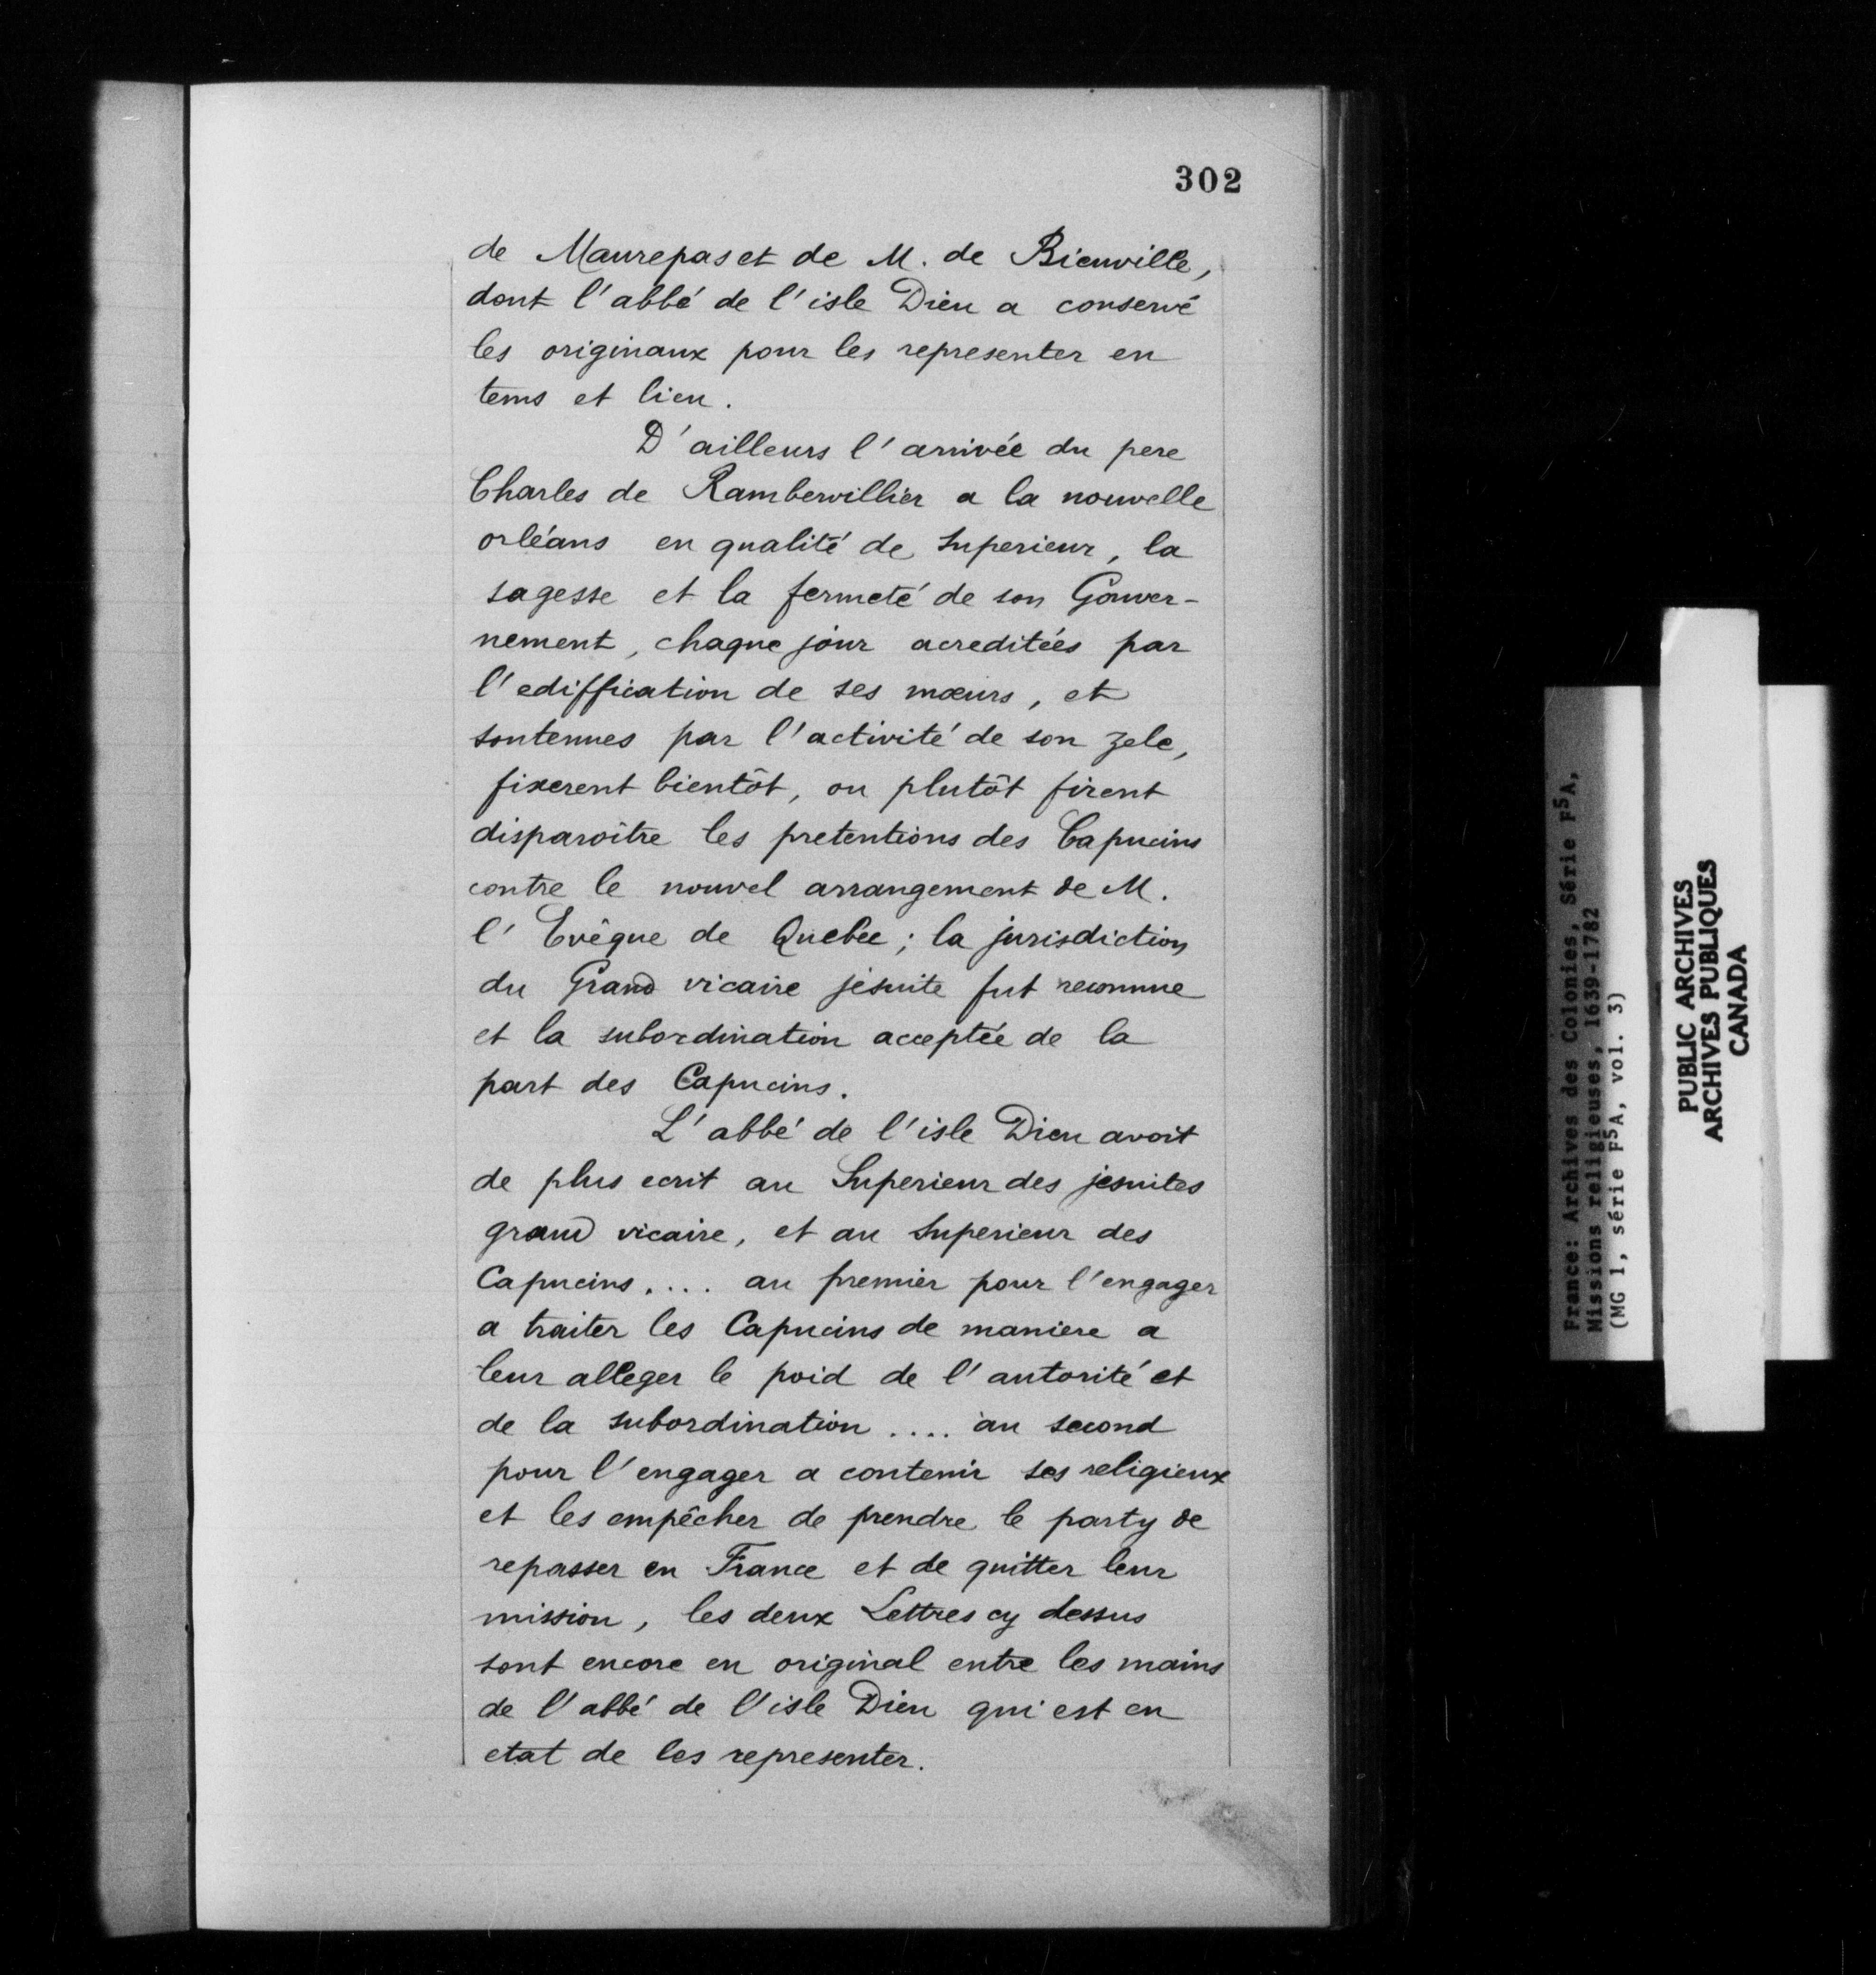 302
de Maurepas et de M. de Bienville,
dont l'abbé de l'isle Dieu a conservé
les originaux pour les representer en
tems et lieu.
D'ailleurs l'arrivée du pere
Charles de Rambervillier a la nouvelle
orléans en qualité de Superieur, la
sagesse et la fermeté de son Gouver-
nement, chaque jour acreditées par
l'ediffication de ses mœurs, et
soutenues par l'activité de son zele,
fixerent bientôt, ou plutôt firent
disparoître les pretentions des Capucins
contre le nouvel arrangement de M.
l'Evêque de Quebec; la jurisdiction
du Grand vicaire jésuite fut reconnue
et la subordination acceptée de la
part des Capucins.
L'abbé de l'isle Dieu avoit
de plus ecrit au Superieur des jesuites
grand vicaire, et au Superieur des
Capucins.... au premier pour l'engager
a traiter les Capucins de maniere a
leur alleger le poid de l'autorité et
de la subordination .... au second
pour l'engager a contenir ses religieux
et les empêcher de prendre le party de
repasser en France et de quitter leur
mission, les deux Lettres cy dessus
sont encore en original entre les mains
de l'abbé de l'isle Dieu qui est en
etat de les representer.
France: Archives des Colonies, Série F5A,
Missions religieuses, 1639-1782
(MG 1, série F5A, vol. 3)
PUBLIC ARCHIVES
ARCHIVES PUBLIQUES
CANADA